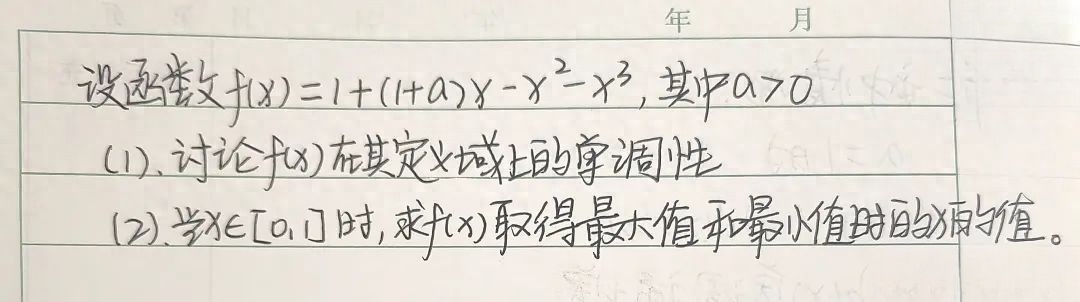 年 月
设函数f(x)=1+(1+a)x-x²-x³,其中a>0
(1).讨论f(x)在其定义域上的单调性
(2).当x∈[0,1]时,求f(x)取得最大值和最小值时的x的值。